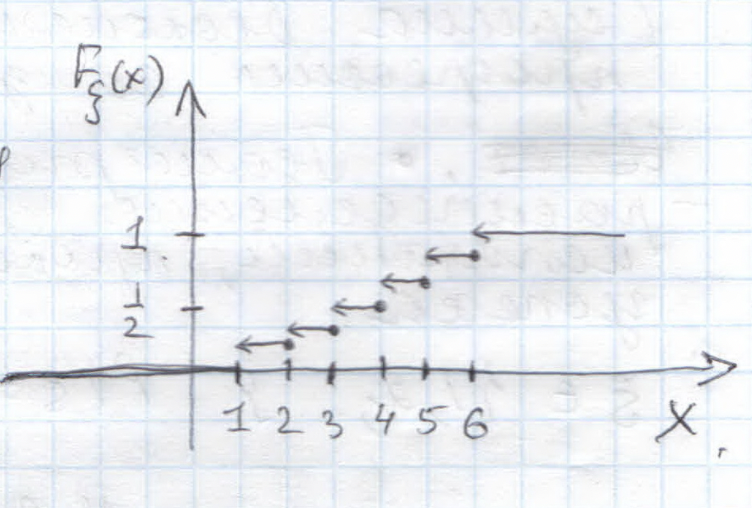 F_ξ(x)
1
1/2
1 2 3 4 5 6
X